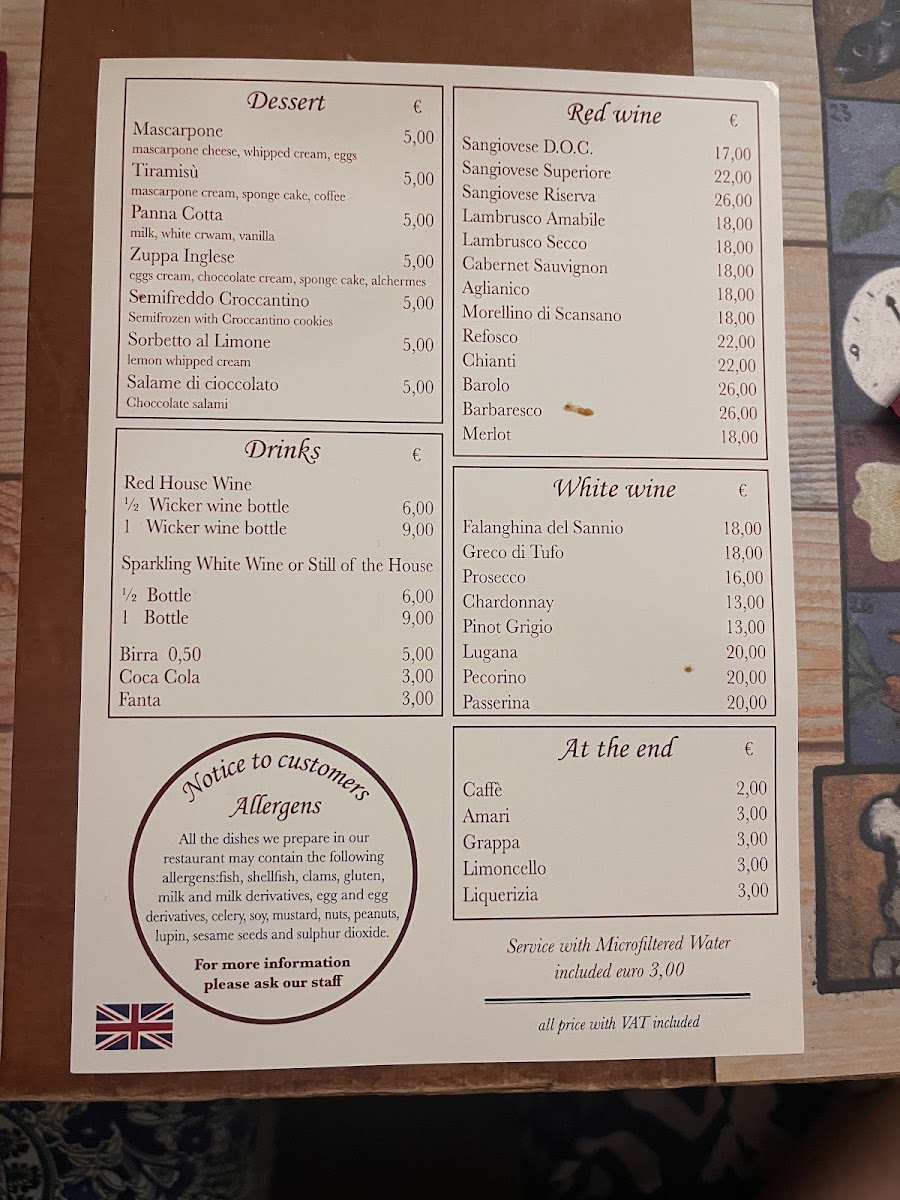 Dessert €
Mascarpone 5,00
mascarpone cheese, whipped cream, eggs
Tiramisù 5,00
mascarpone cream, sponge cake, coffee
Panna Cotta 5,00
milk, white crwam, vanilla
Zuppa Inglese 5,00
eggs cream, choccolate cream, sponge cake, alchermes
Semifreddo Croccantino 5,00
Semifrozen with Croccantino cookies
Sorbetto al Limone 5,00
lemon whipped cream
Salame di cioccolato 5,00
Choccolate salami
Drinks €
Red House Wine
½ Wicker wine bottle 6,00
1 Wicker wine bottle 9,00
Sparkling White Wine or Still of the House
½ Bottle 6,00
1 Bottle 9,00
Birra 0,50 5,00
Coca Cola 3,00
Fanta 3,00
Notice to customers
Allergens
All the dishes we prepare in our
restaurant may contain the following
allergens:fish, shellfish, clams, gluten,
milk and milk derivatives, egg and egg
derivatives, celery, soy, mustard, nuts, peanuts,
lupin, sesame seeds and sulphur dioxide.
For more information
please ask our staff
Red wine €
Sangiovese D.O.C. 17,00
Sangiovese Superiore 22,00
Sangiovese Riserva 26,00
Lambrusco Amabile 18,00
Lambrusco Secco 18,00
Cabernet Sauvignon 18,00
Aglianico 18,00
Morellino di Scansano 18,00
Refosco 22,00
Chianti 22,00
Barolo 26,00
Barbaresco 26,00
Merlot 18,00
White wine €
Falanghina del Sannio 18,00
Greco di Tufo 18,00
Prosecco 16,00
Chardonnay 13,00
Pinot Grigio 13,00
Lugana 20,00
Pecorino 20,00
Passerina 20,00
At the end €
Caffè 2,00
Amari 3,00
Grappa 3,00
Limoncello 3,00
Liquerizia 3,00
Service with Microfiltered Water
included euro 3,00
all price with VAT included
23